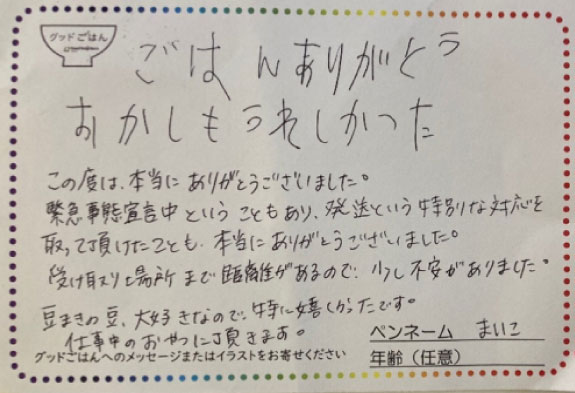 グッドごはん
ごはんありがとう
おかしもうれしかった
この度は、本当にありがとうございました。
緊急事態宣言中ということもあり、発送という特別な対応を
取って頂けたことも、本当にありがとうございました。
受け取り場所まで距離があるので、少し不安がありました。
豆まきの豆、大好きなので、特に嬉しかったです。
仕事中のおやつに頂きます。
ペンネーム まいこ
グッドごはんへのメッセージまたはイラストをお寄せください
年齢（任意）